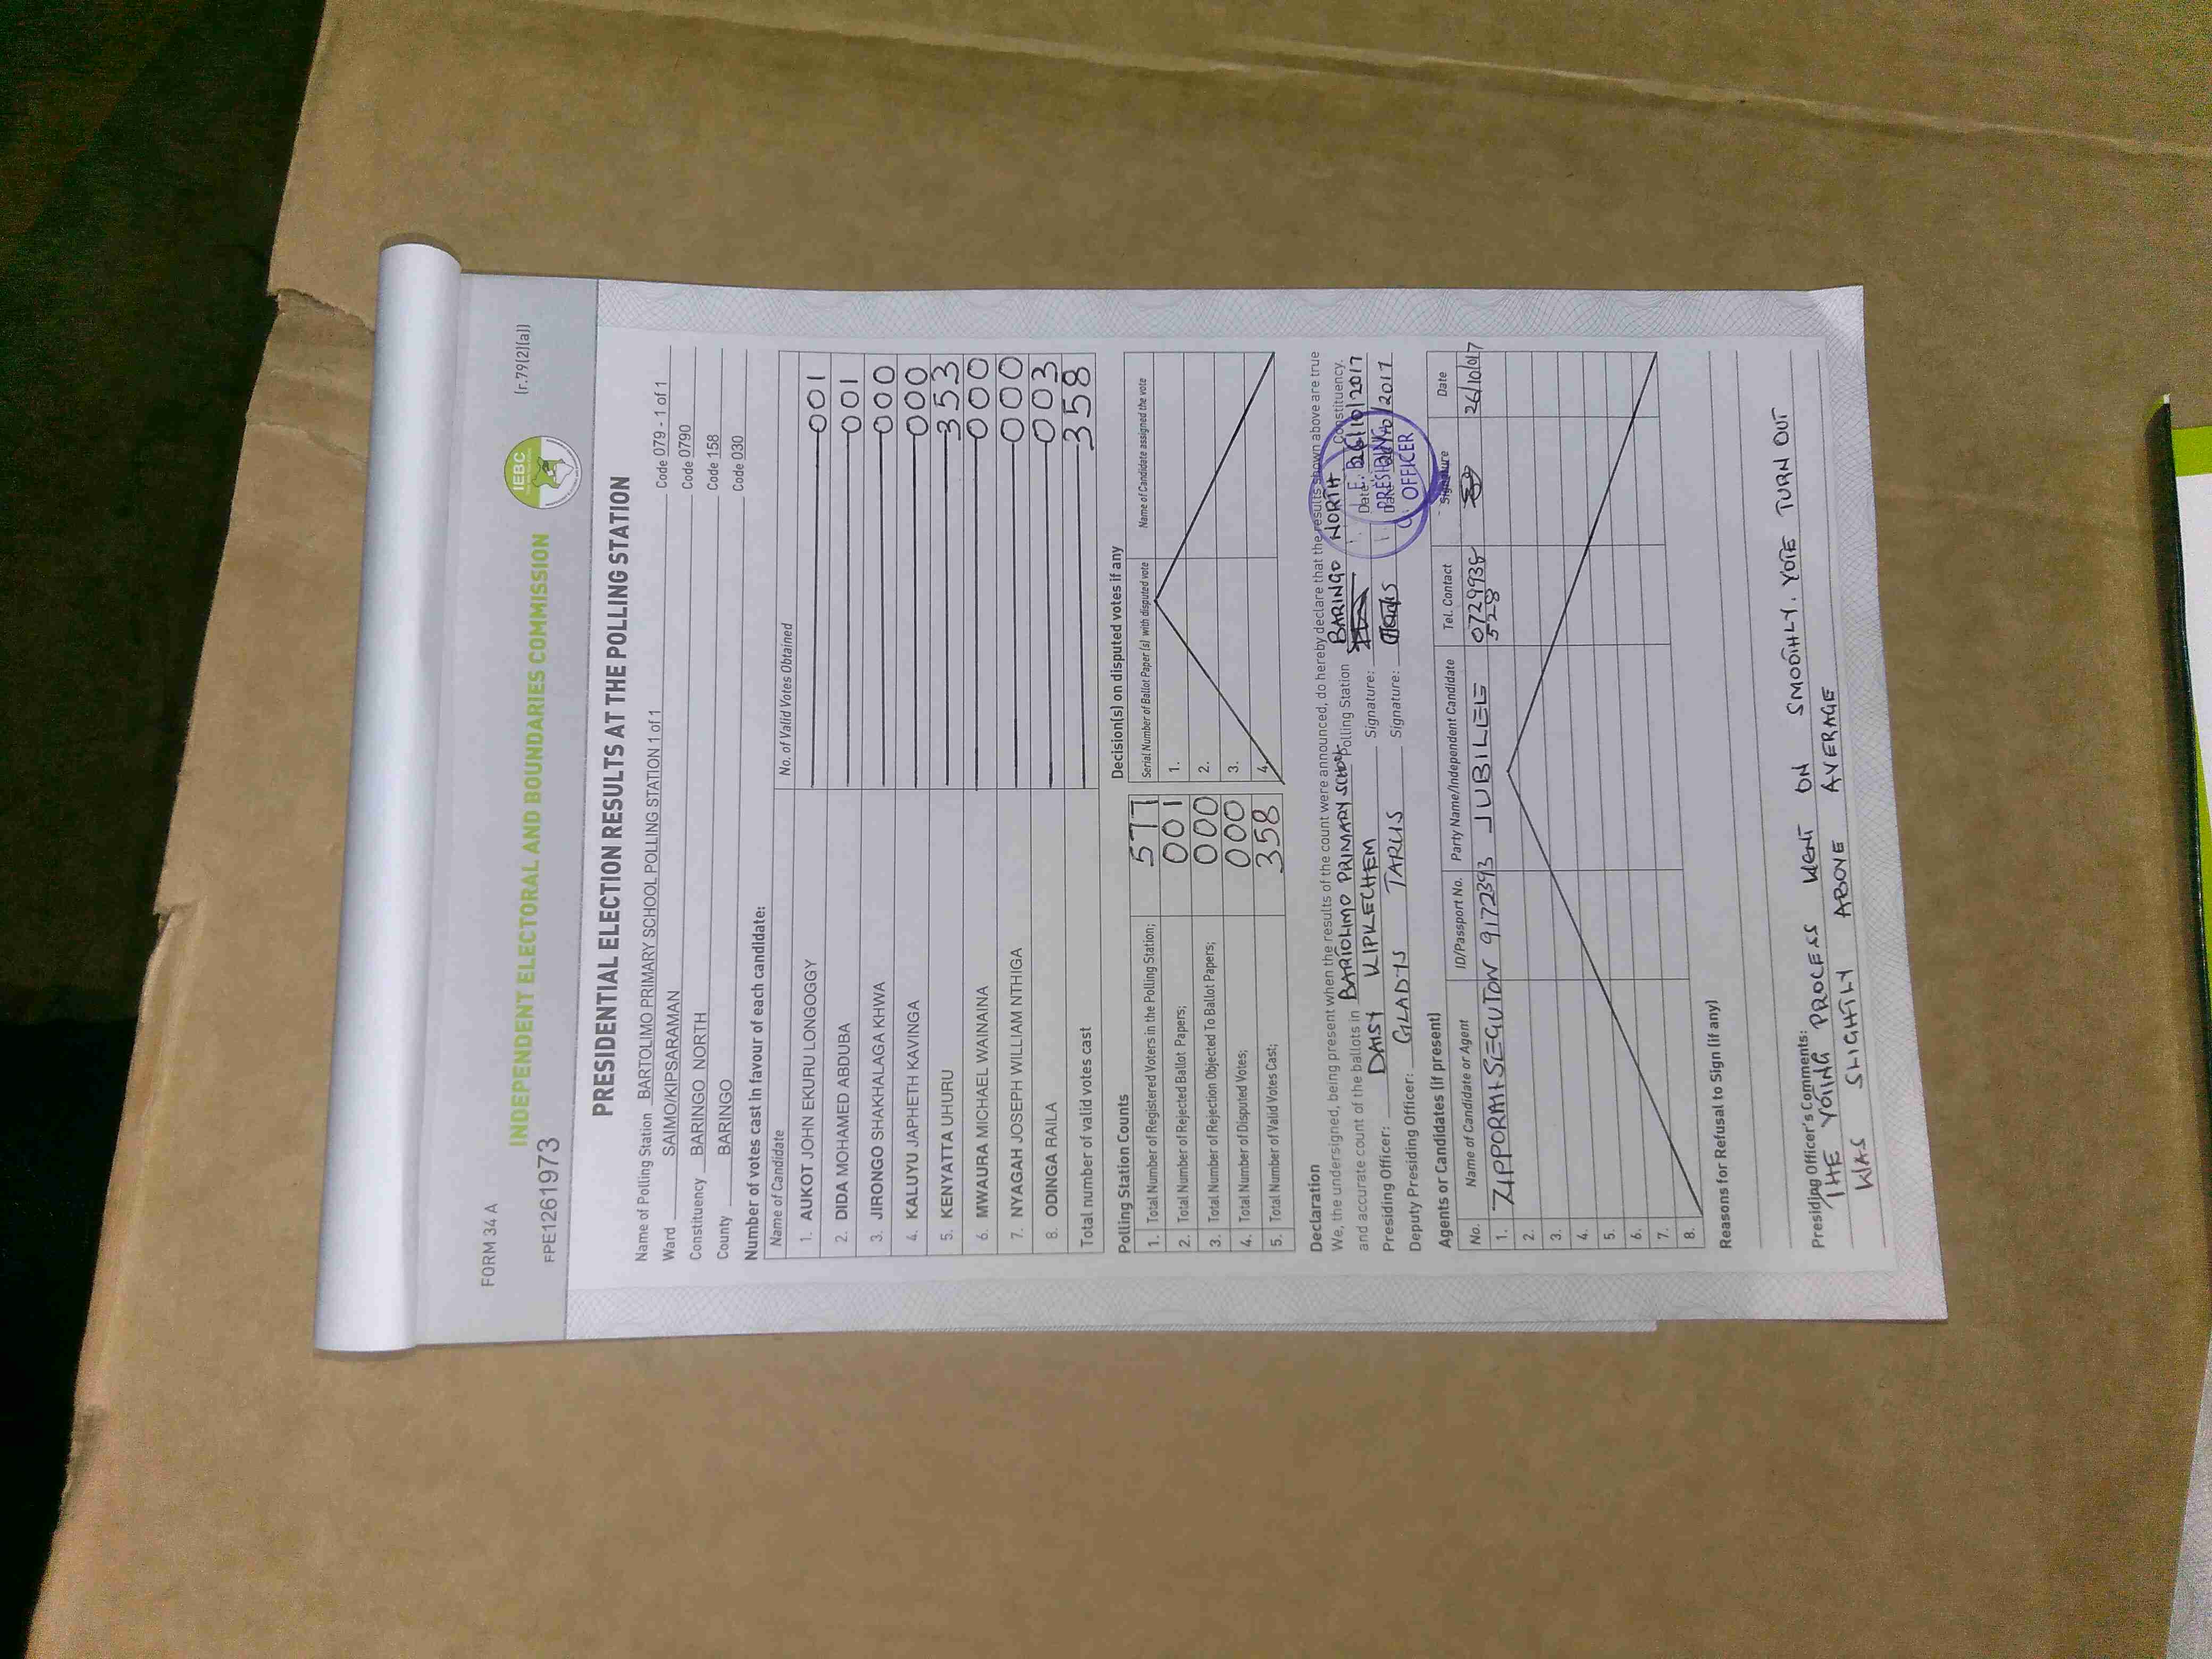 FORM 34 A
(r.79(2)(a))
IEBC
INDEPENDENT ELECTORAL AND BOUNDARIES COMMISSION
FPE1261973
PRESIDENTIAL ELECTION RESULTS AT THE POLLING STATION
Name of Polling Station BARTOLIMO PRIMARY SCHOOL POLLING STATION 1 of 1 Code 079 - 1 of 1
Ward SAIMO/KIPSARAMAN Code 0790
Constituency BARINGO NORTH Code 158
County BARINGO Code 030
Number of votes cast in favour of each candidate:
Name of Candidate No. of Valid Votes Obtained
1. AUKOT JOHN EKURU LONGOGGY 001
2. DIDA MOHAMED ABDUBA 001
3. JIRONGO SHAKHALAGA KHWA 000
4. KALUYU JAPHETH KAVINGA 000
5. KENYATTA UHURU 353
6. MWAURA MICHAEL WAINAINA 000
7. NYAGAH JOSEPH WILLIAM NTHIGA 000
8. ODINGA RAILA 003
Total number of valid votes cast 358
Polling Station Counts
1. Total Number of Registered Voters in the Polling Station; 577
2. Total Number of Rejected Ballot Papers; 001
3. Total Number of Rejection Objected To Ballot Papers; 000
4. Total Number of Disputed Votes; 000
5. Total Number of Valid Votes Cast; 358
Decision(s) on disputed votes if any
Serial Number of Ballot Paper (s) with disputed vote Name of Candidate assigned the vote
1.
2.
3.
4.
Declaration
We, the undersigned, being present when the results of the count were announced, do hereby declare that the results shown above are true
and accurate count of the ballots in BARTOLIMO PRIMARY SCHOOL Polling Station BARINGO NORTH Constituency.
Presiding Officer: DAISY KIPKECHEM Signature: Date: 26/10/2017
Deputy Presiding Officer: GLADYS TARUS Signature: Date: /2017
PRESIDING
OFFICER
Agents or Candidates (if present)
No. Name of Candidate or Agent ID/Passport No. Party Name/Independent Candidate Tel. Contact Signature Date
1. ZIPPORAH SEGUTON 9172393 JUBILEE 0729938 528 26/10/017
2.
3.
4.
5.
6.
7.
8.
Reasons for Refusal to Sign (if any)
Presiding Officer's Comments:
THE VOTING PROCESS WENT ON SMOOTHLY. VOTE TURN OUT
WAS SLIGHTLY ABOVE AVERAGE